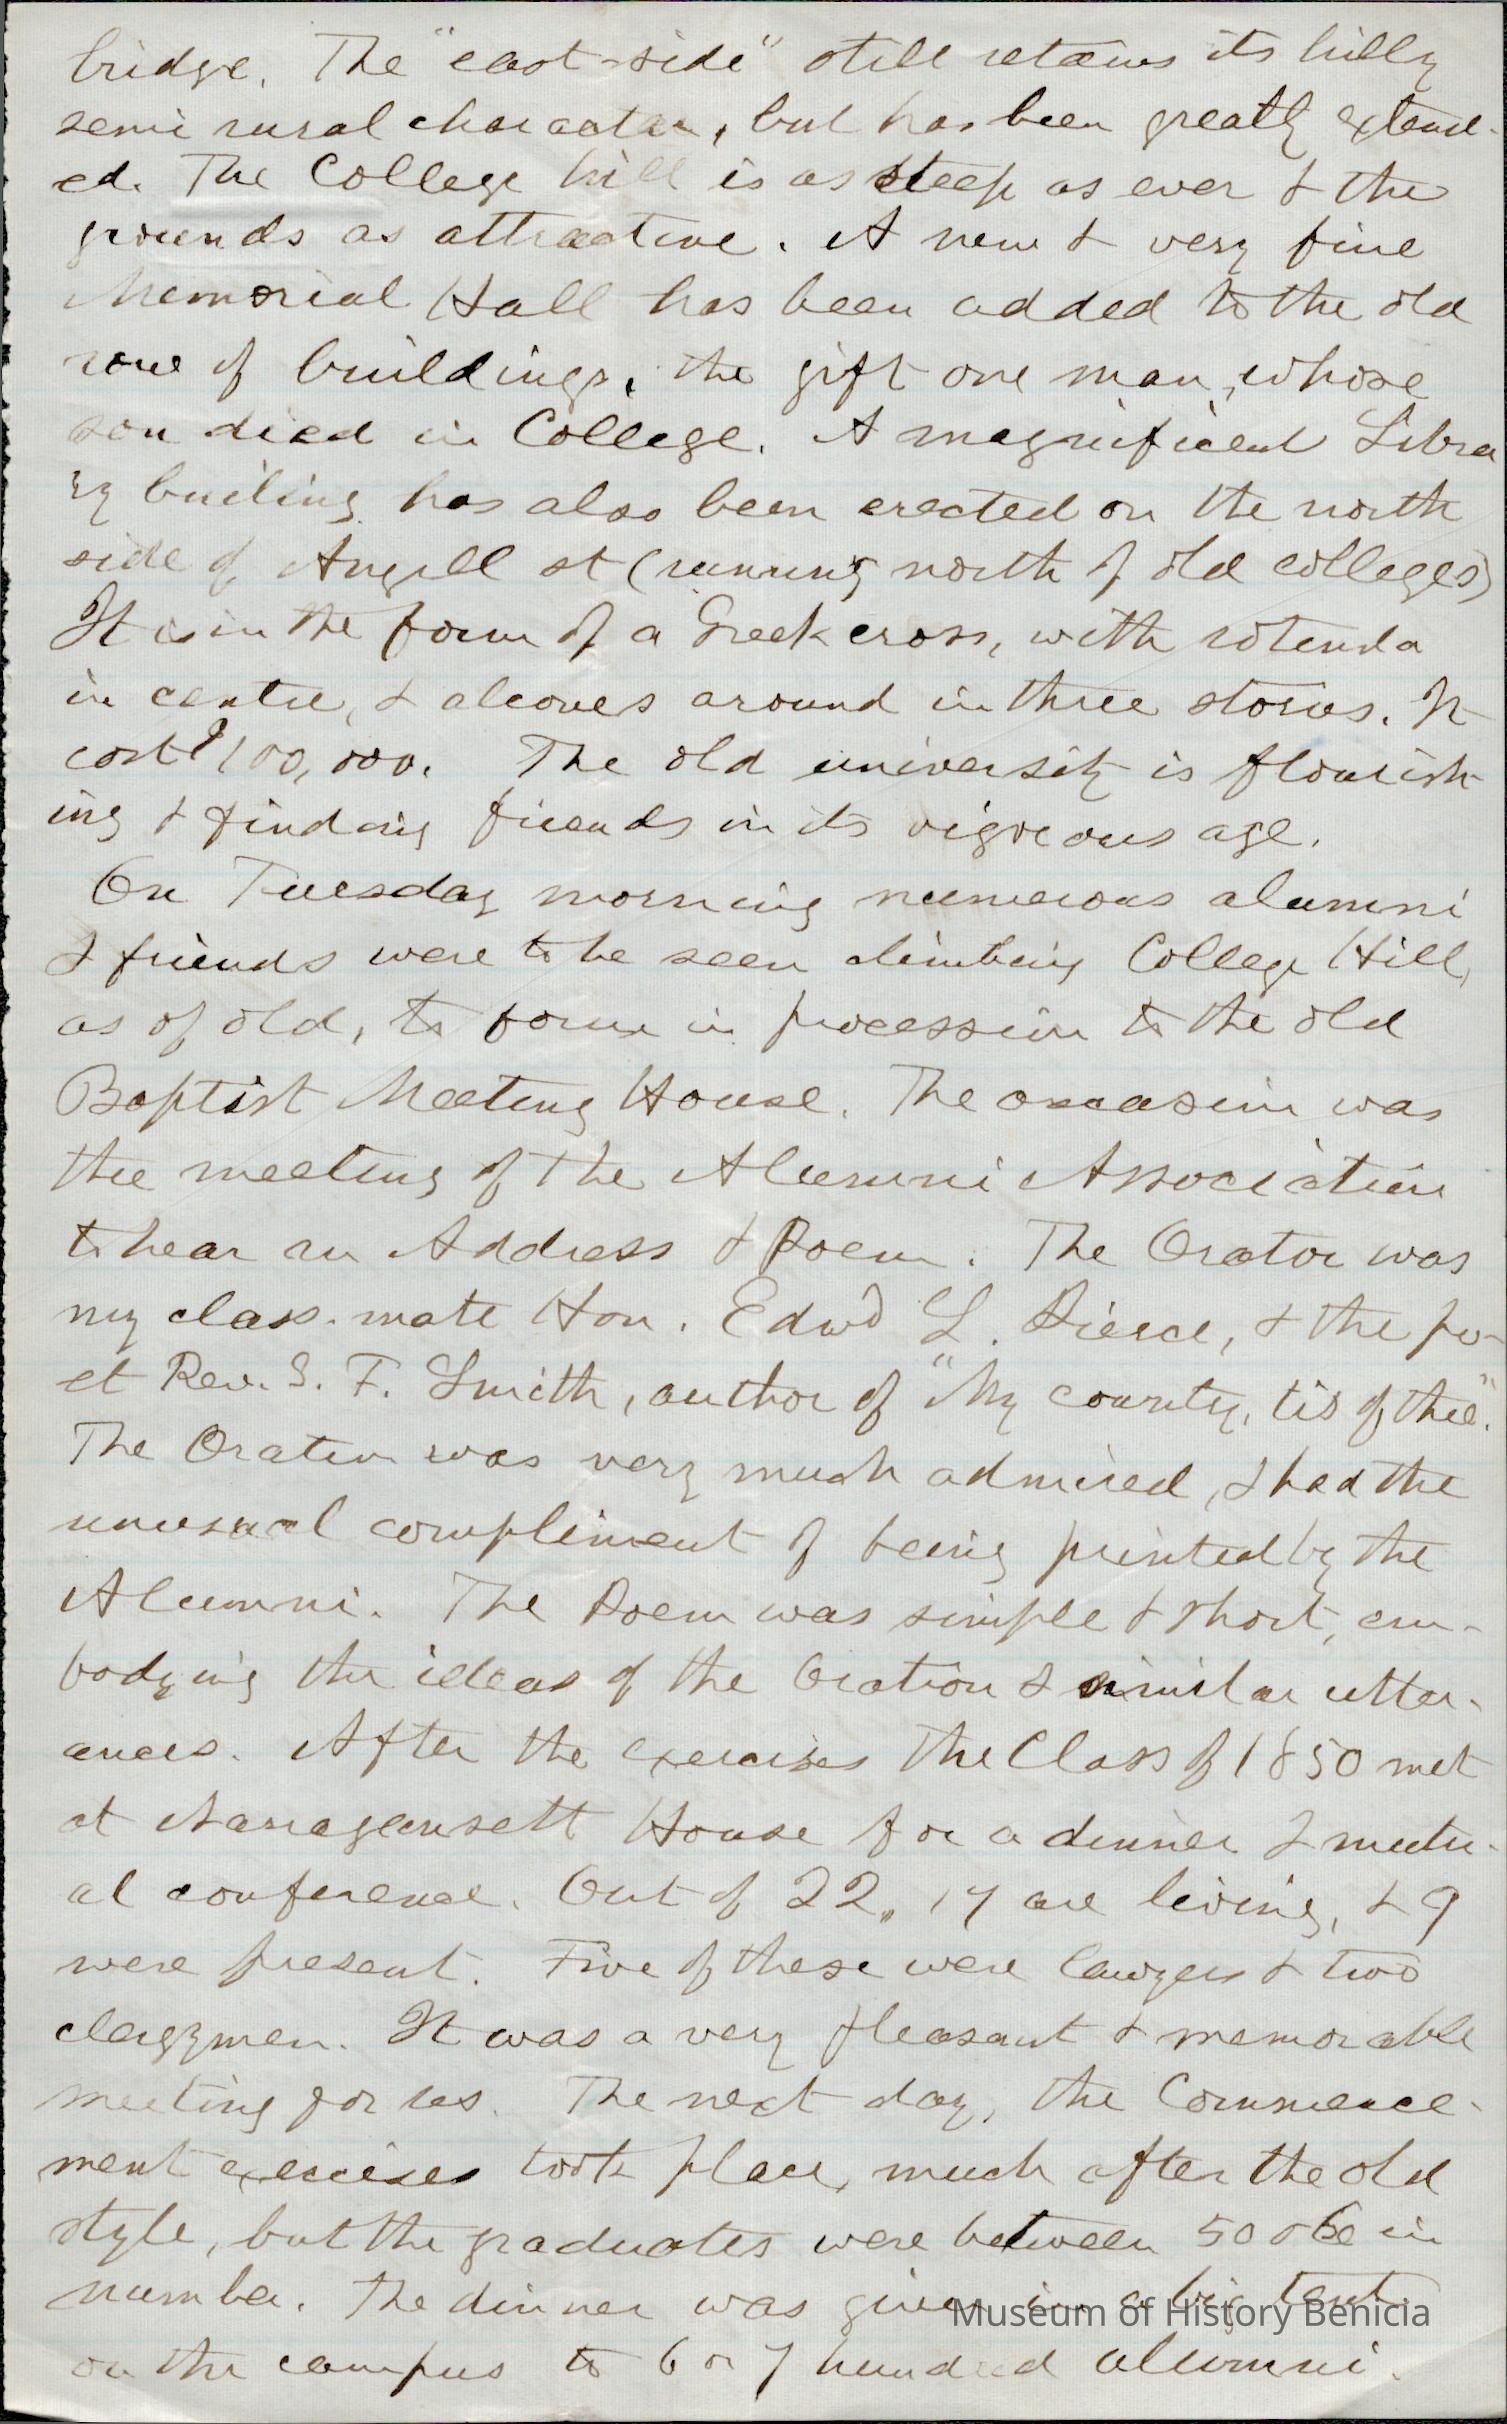 bridge. The "east-side" still retains its hilly
semi rural character, but has been greatly extend-
ed. The College hill is as steep as ever & the
grounds as attractive. A new & very fine
Memorial Hall has been added to the old
row of buildings, the gift one man, whose
son died in College. A magnificent Libra
ry builing has also been erected on the north
side of Angell st (running north of old colleges)
It is in the form of a Greek cross, with rotunda
in centre, & alcoves around in three stories. It
cost $100,000. The old university is flourish-
ing & finding friends in its vigorous age.
On Tuesday morning numerous alumni
& friends were to be seen climbing College Hill,
as of old, to form in procession to the old
Baptist Meeting House. The occasion was
the meeting of the Alumni Association
to hear an Address & Poem. The Orator was
my class-mate Hon. Edwd L. Pierce, & the po-
et Rev. S. F. Smith, author of "My country, tis of thee".
The Oration was very much admired, & had the
unusual compliment of being printed by the
Alumni. The Poem was simple & short, em-
bodying the ideas of the Oration & similar utter-
ances. After the exercises the Class of 1850 met
at Narragansett House for a dinner & mutu-
al conference. Out of 22, 17 are living, & 9
were present. Five of these were lawyers & two
clergymen. It was a very pleasant & memorable
meeting for us. The next day, the Commence-
ment exercises took place, much after the old
style, but the graduates were between 50 & 60 in
number. The dinner was given in a big tent
on the campus to 6 or 7 hundred alumni.
Museum of History Benicia